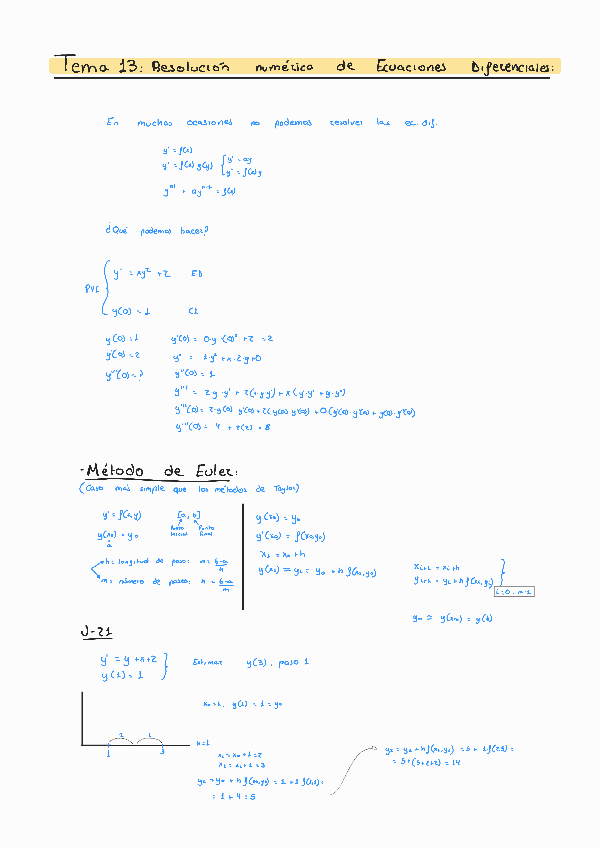 Tema 13: Resolución numérica de Ecuaciones Diferenciales:
En muchas ocasiones no podemos resolver las ec. dif.
y' = f(x)
y' = f(x) g(y) { y' = ay
y' = f(x) y
¿Qué podemos hacer?
PVI { y' = xy² + 2 ED
y(0) = 1 CI
y(0) = 1 y'(0) = 0·y·(0)² + 2 = 2
y'(0) = 2 y'' = 1·y² + x·2·y+0
y''(0) = ? y''(0) = 1
y''' = 2·y·y' + 2(+·y·y') + x(y'·y' + y·y'')
y'''(0) = 4 + 2(2) = 8
-Método de Euler:
(Caso más simple que los métodos de Taylor)
y' = f(x,y) [a, b]
y(x₀) = y₀ Punto Inicial Punto Final
a
h = longitud de paso: h = b-a
m = número de pasos:
y(x₀) = y₀
y'(x₀) = f(x₀,y₀)
x₁ = x₀ + h
y(x₁) ≃ y₁ = y₀ + h f(x₀,y₀)
xᵢ₊₁ = xᵢ + h
yᵢ₊₁ = yᵢ + h f(xᵢ,yᵢ)
i = 0...m-1
yₘ ≃ y(xₘ) = y(b)
J-21
y' = y + x + 2
y(1) = 1
Estimar y(3), paso 1
x₀ = 1, y(1) = 1 = y₀
1 1
1 3
h = 1
x₁ = x₀ + 1 = 2
x₂ = x₁ + 1 = 3
y₁ = y₀ + h f(x₀,y₀) = 1 + 1 f(1,1) =
= 1 + 4 = 5
y₂ = y₁ + h f(x₁,y₁) = 5 + 1·f(2,5) =
= 5 + (5+2+2) = 14